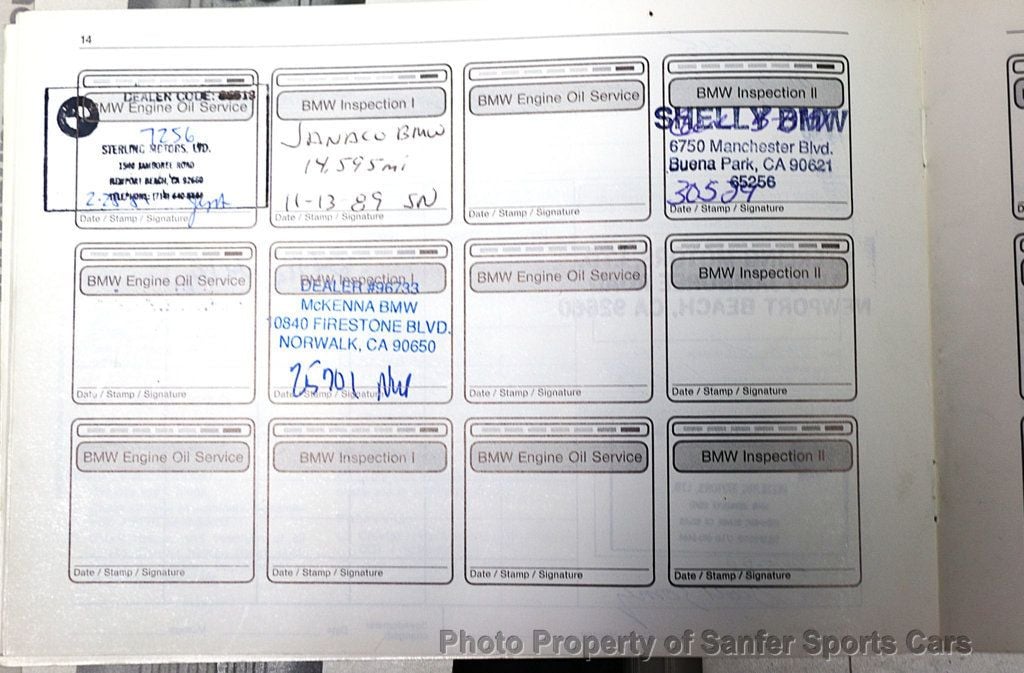 14
DEALER CODE:
BMW Engine Oil Service
7256
STERLING MOTORS, LTD.
1540 JAMBOREE ROAD
NEWPORT BEACH, CA 92660
TELEPHONE (714)
Date / Stamp / Signature
BMW Inspection I
BMW
14,595 mi
11-13-89 SN
Date / Stamp / Signature
BMW Engine Oil Service
Date / Stamp / Signature
BMW Inspection II
SHELLY BMW
6750 Manchester Blvd.
Buena Park, CA 90621
65256
Date / Stamp / Signature
BMW Engine Oil Service
Date / Stamp / Signature
BMW Inspection I
DEALER #96733
McKENNA BMW
10840 FIRESTONE BLVD.
NORWALK, CA 90650
25701
Date / Stamp / Signature
BMW Engine Oil Service
Date / Stamp / Signature
BMW Inspection II
Date / Stamp / Signature
BMW Engine Oil Service
Date / Stamp / Signature
BMW Inspection I
Date / Stamp / Signature
BMW Engine Oil Service
Date / Stamp / Signature
BMW Inspection II
Date / Stamp / Signature
Photo Property of Sanfer Sports Cars